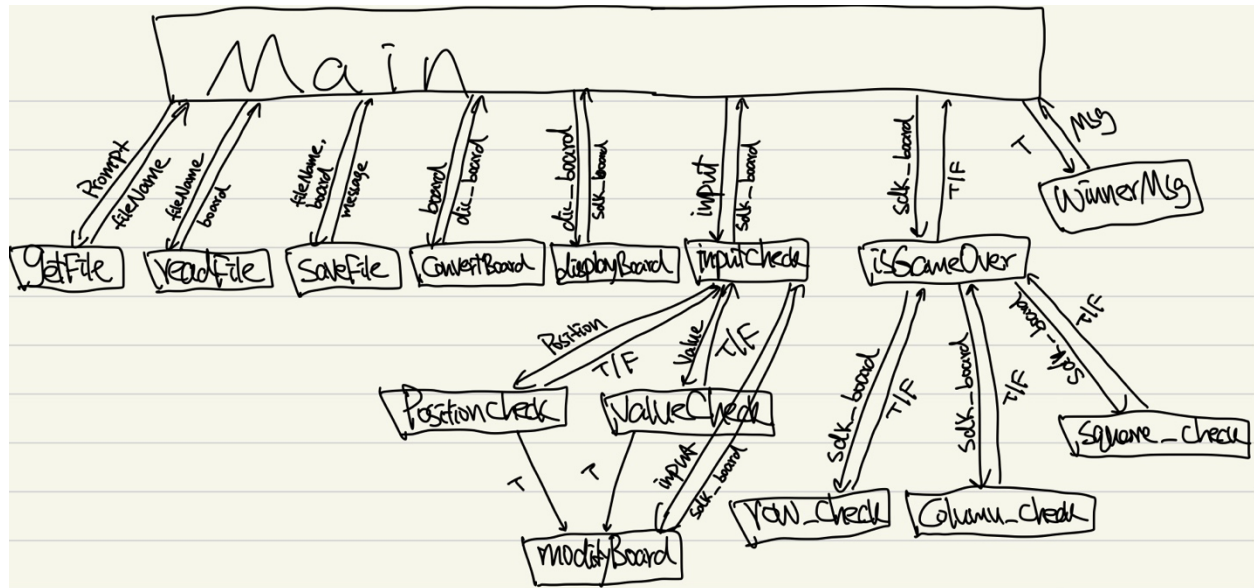 Main
Prompt
fileName
fileName
board
fileName,
board
message
board
dic_board
dic_board
sdk_board
input
sdk_board
sdk_board
T/F
T
Msg
WinnerMsg
getFile
readFile
saveFile
ConvertBoard
displayBoard
inputCheck
isGameOver
Position
T/F
Value
T/F
sdk_board
T/F
sdk_board
T/F
sdk_board
T/F
PositionCheck
ValueCheck
square_check
T
T
input
sdk_board
row_check
Column_check
modifyBoard